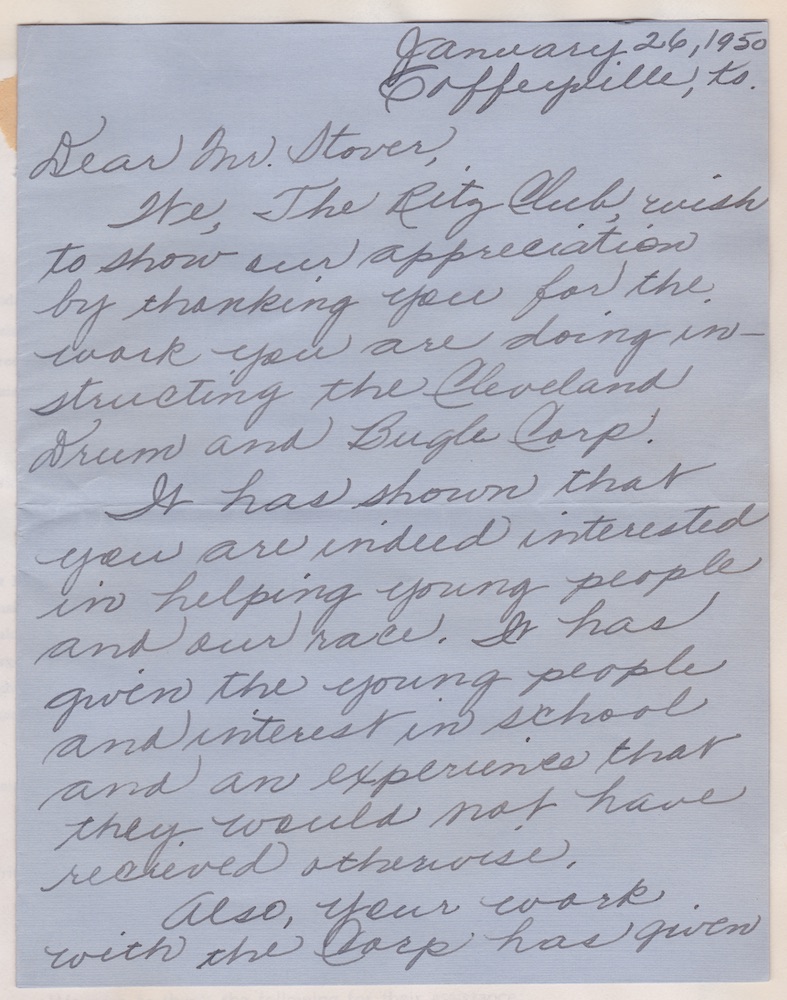 January 26, 1950
Coffeyville, Ks.
Dear Mr. Stover,
We, The Ritz Club, wish
to show our appreciation
by thanking you for the
work you are doing in-
structing the Cleveland
Drum and Bugle Corp.
It has shown that
you are indeed interested
in helping young people
and our race. It has
given the young people
and interest in school
and an experience that
they would not have
recieved otherwise.
Also, your work
with the Corp has given